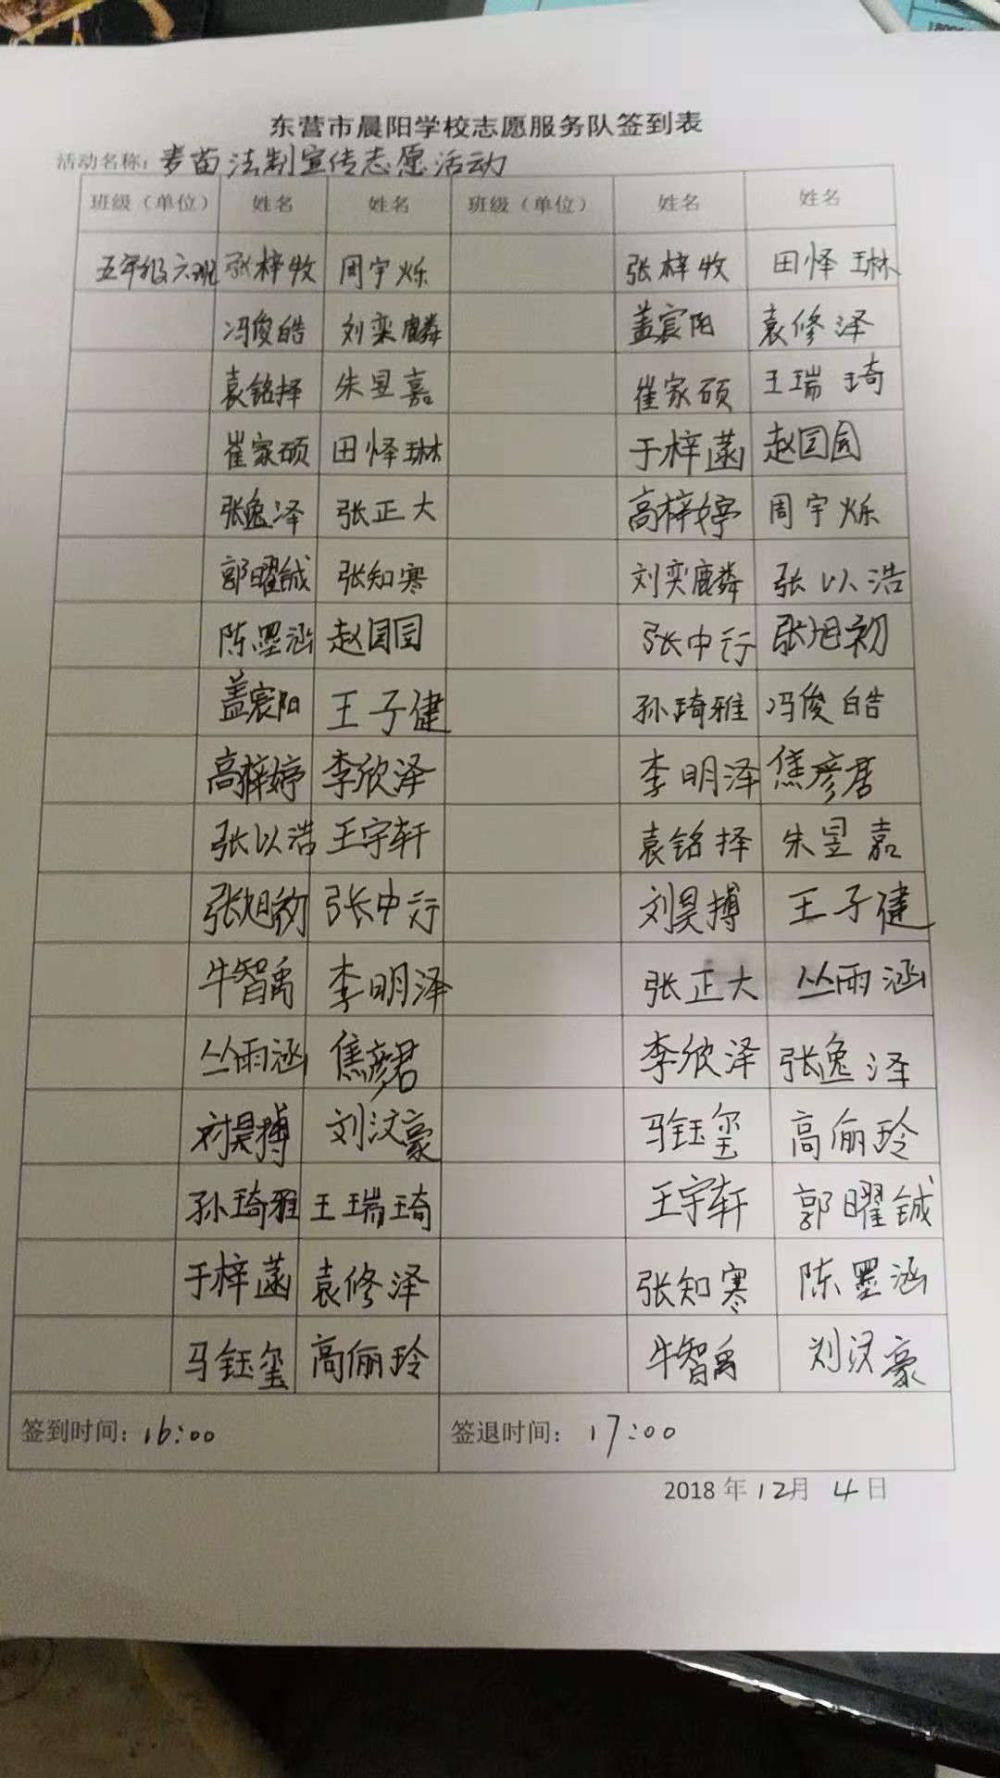 东营市晨阳学校志愿服务队签到表
活动名称：麦苗法制宣传志愿活动
班级（单位） 姓名 姓名 班级（单位） 姓名 姓名
五年级六班 张梓牧 周宇烁 张梓牧 田怿琳
冯俊皓 刘奕麟 盖宸阳 袁修泽
袁铭择 朱昱嘉 崔家硕 王瑞琦
崔家硕 田怿琳 于梓菡 赵园园
张逸泽 张正大 高梓婷 周宇烁
郭曜铖 张知寒 刘奕麟 张以浩
陈墨涵 赵园园 张中行 张旭初
盖宸阳 王子健 孙琦雅 冯俊皓
高梓婷 李欣泽 李明泽 焦彦君
张以浩 王宇轩 袁铭择 朱昱嘉
张旭初 张中行 刘昊搏 王子健
牛智禹 李明泽 张正大 丛雨涵
丛雨涵 焦彦君 李欣泽 张逸泽
刘昊搏 刘汶豪 马钰玺 高俪玲
孙琦雅 王瑞琦 王宇轩 郭曜铖
于梓菡 袁修泽 张知寒 陈墨涵
马钰玺 高俪玲 牛智禹 刘汶豪
签到时间：16:00 签退时间：17:00
2018年12月4日